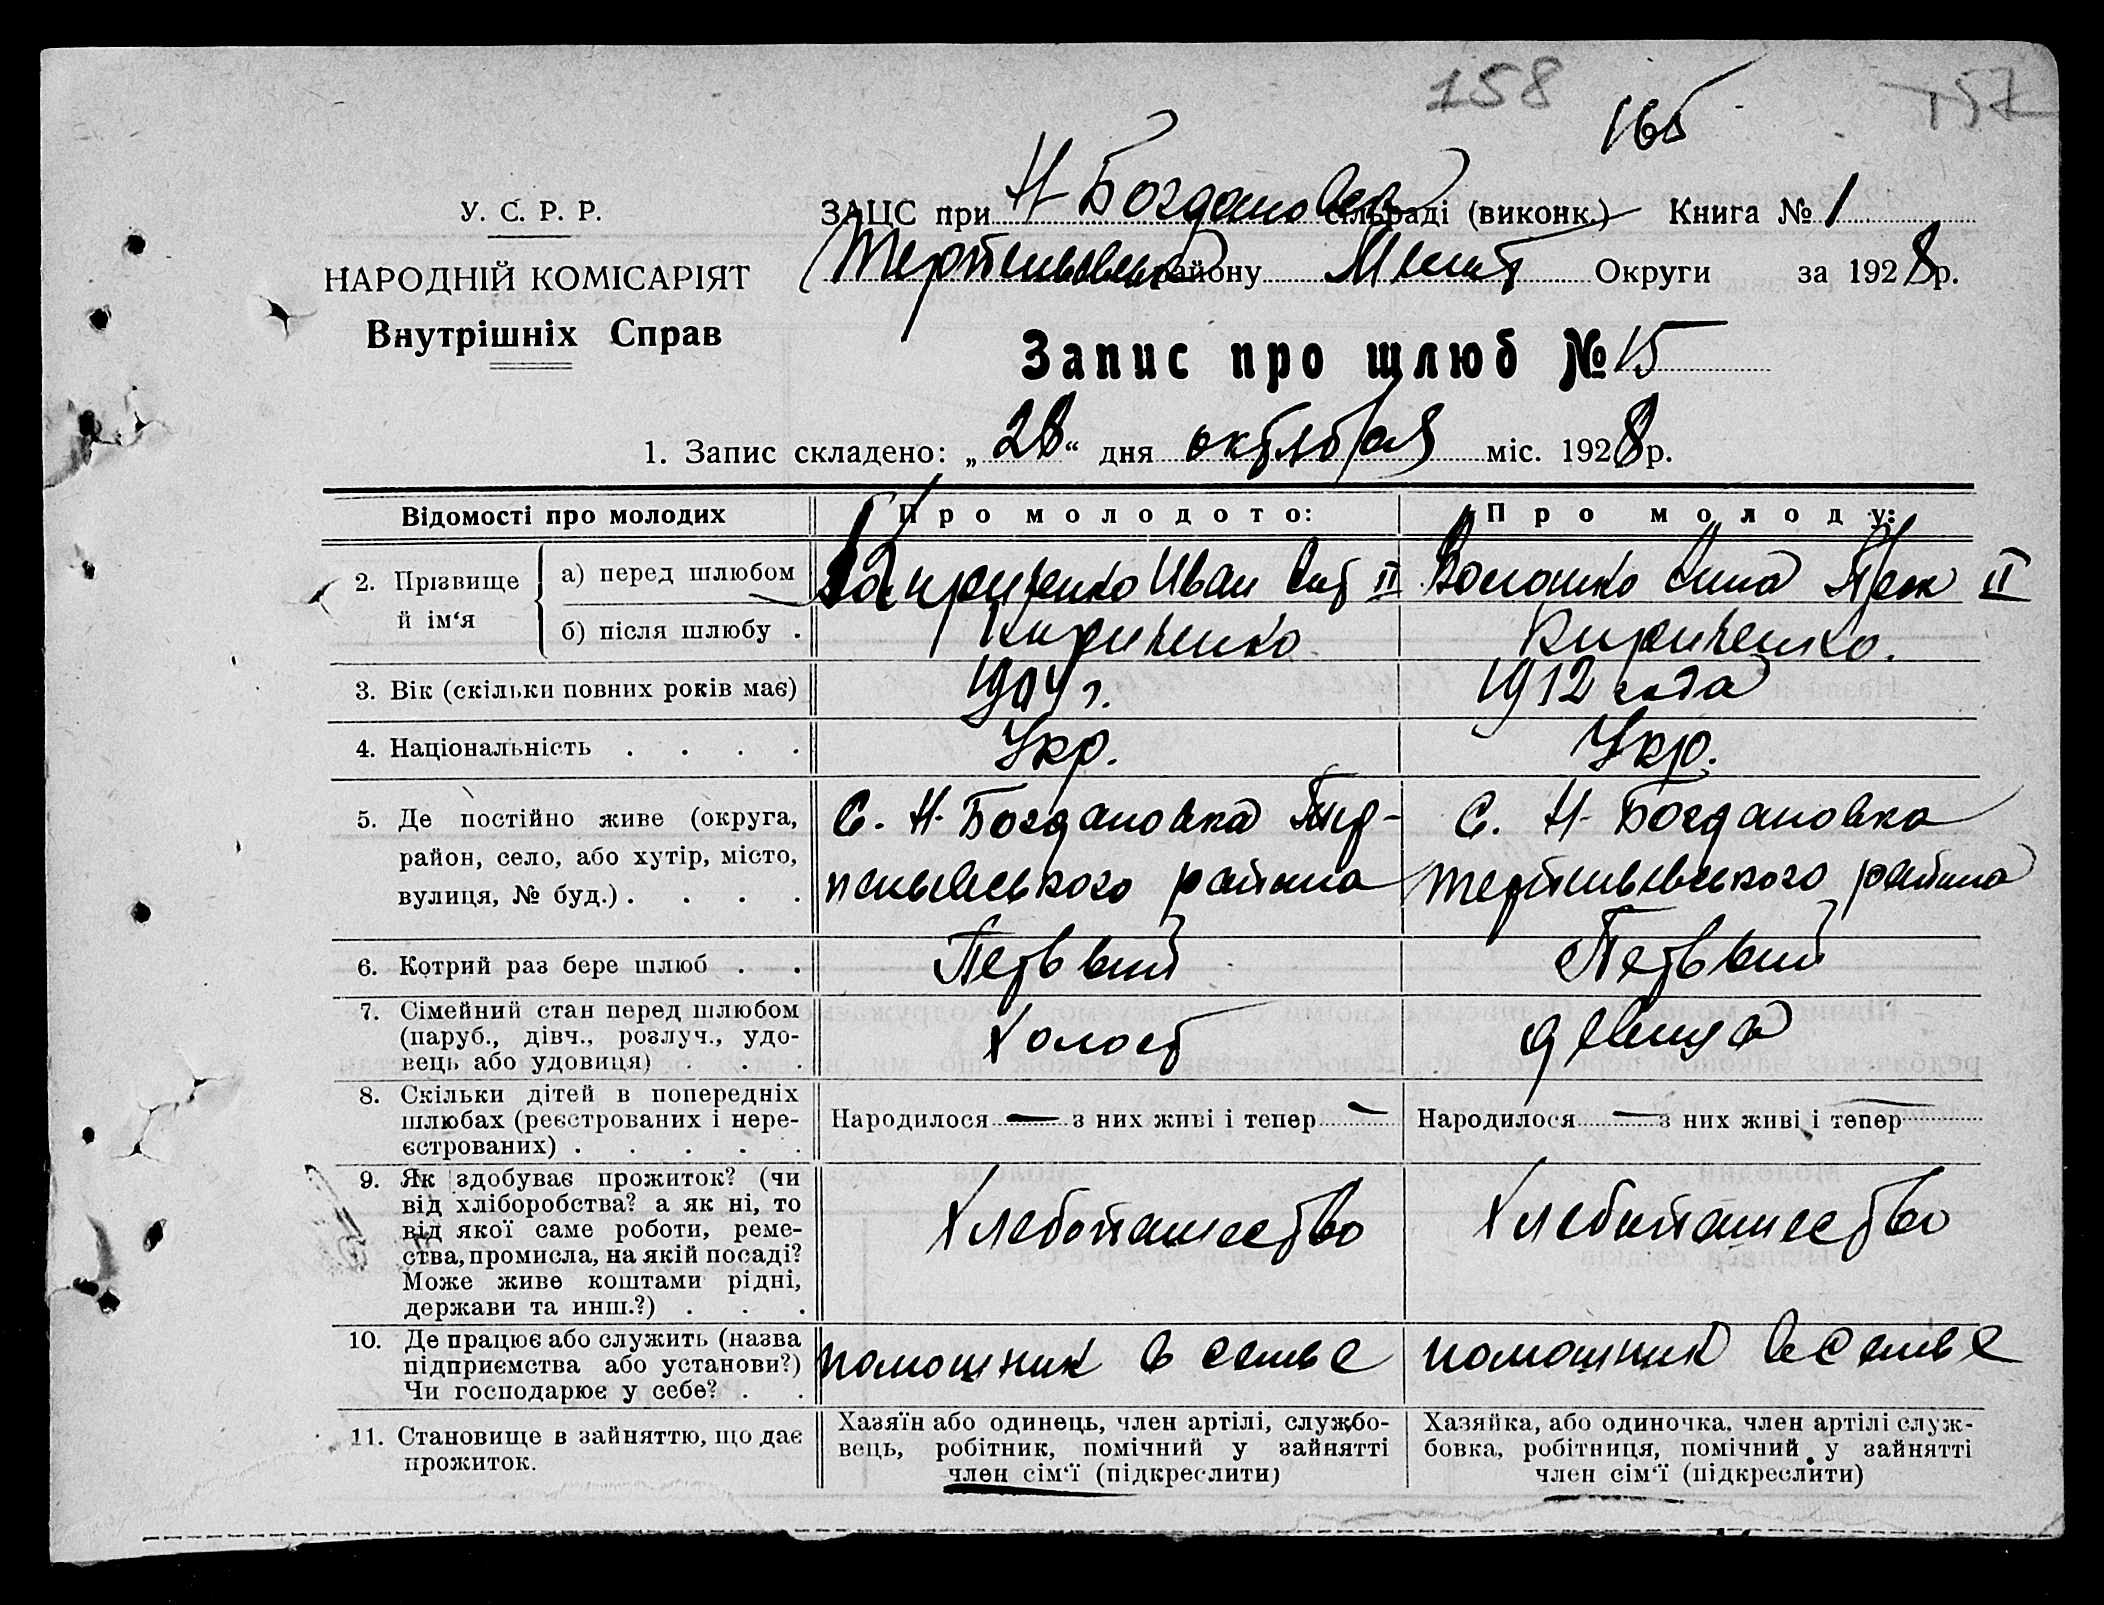 158
157
165
У. С. Р. Р.
НАРОДНІЙ КОМІСАРІЯТ
Внутрішніх Справ
ЗАЦС при Н-Богдановск сільраді (виконк.) Книга № 1
району Округи за 1928 р.
Запис про шлюб № 15
1. Запис складено: „28“ дня октября міс. 1928 р.
Відомості про молодих
Про молодого:
Про молоду:
2. Прізвище й ім‘я
а) перед шлюбом
Иван II
II
б) після шлюбу .
Кириченко
Кириченко.
3. Вік (скільки повних років має)
1904 г.
1912 года
4. Національність . . . .
Укр.
Укр.
5. Де постійно живе (округа, район, село, або хутір, місто, вулиця, № буд.) . . . .
С. Н-Богдановка
района
С. Н-Богдановка
района
6. Котрий раз бере шлюб . .
Первый
Первый
7. Сімейний стан перед шлюбом (паруб., дівч., розлуч., удовець або удовиця) . . .
Холост
девица
8. Скільки дітей в попередніх шлюбах (реєстрованих і нереєстрованих) . . . . .
Народилося — з них живі і тепер —
Народилося — з них живі і тепер —
9. Як здобуває прожиток? (чи від хліборобства? а як ні, то від якої саме роботи, ремества, промисла, на якій посаді? Може живе коштами рідні, держави та инш.?) . . .
Хлебопашество
Хлебопашество
10. Де працює або служить (назва підприємства або установи?) Чи господарює у себе? . .
помошник в семье
помошник в семье
11. Становище в зайняттю, що дає прожиток.
Хазяїн або одинець, член артілі, службовець, робітник, помічний у зайнятті член сім‘ї (підкреслити)
Хазяйка, або одиночка, член артілі службовка, робітниця, помічний у зайнятті член сім‘ї (підкреслити)